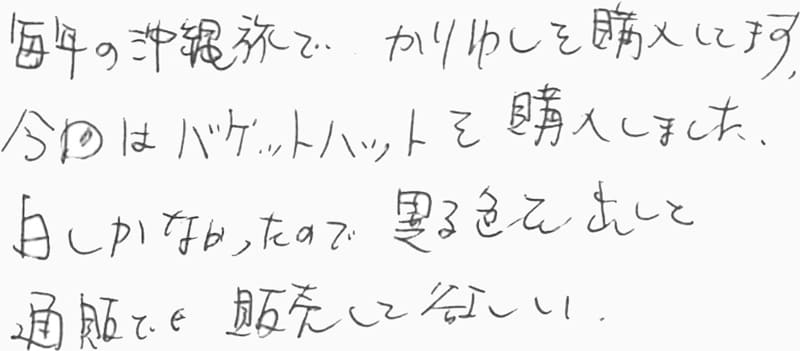 毎年の沖縄旅で かりゆしを購入してます,
今回はバケットハットを購入しました.
白しかなかったので 異る色を出して
通販でも 販売して欲しい.